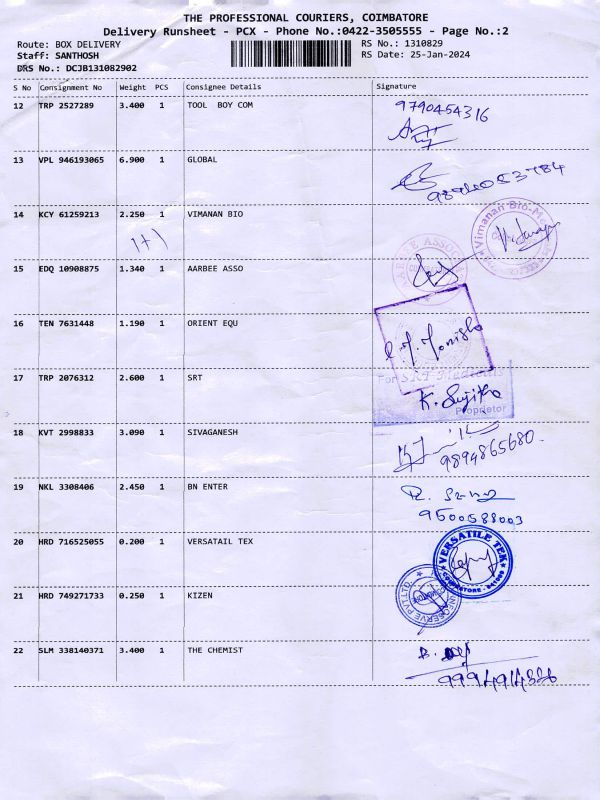 THE PROFESSIONAL COURIERS, COIMBATORE
Delivery Runsheet - PCX - Phone No.:0422-3505555 - Page No.:2
Route: BOX DELIVERY RS No.: 1310829
Staff: SANTHOSH RS Date: 25-Jan-2024
DRS No.: DCJB131082902
S No Consignment No Weight PCS Consignee Details Signature
12 TRP 2527289 3.400 1 TOOL BOY COM 9790454316
13 VPL 946193065 6.900 1 GLOBAL
9894053784
14 KCY 61259213 2.250 1 VIMANAN BIO Vimanan Bio-Me
1+1
15 EDQ 10908875 1.340 1 AARBEE ASSO
16 TEN 7631448 1.190 1 ORIENT EQU
17 TRP 2076312 2.600 1 SRT
K. Sujitha
Proprietor
18 KVT 2998833 3.090 1 SIVAGANESH
9894865680
19 NKL 3308406 2.450 1 BN ENTER
9500588003
20 HRD 716525055 0.200 1 VERSATAIL TEX VERSATILE TEK
COIMBATORE
21 HRD 749271733 0.250 1 KIZEN
22 SLM 338140371 3.400 1 THE CHEMIST